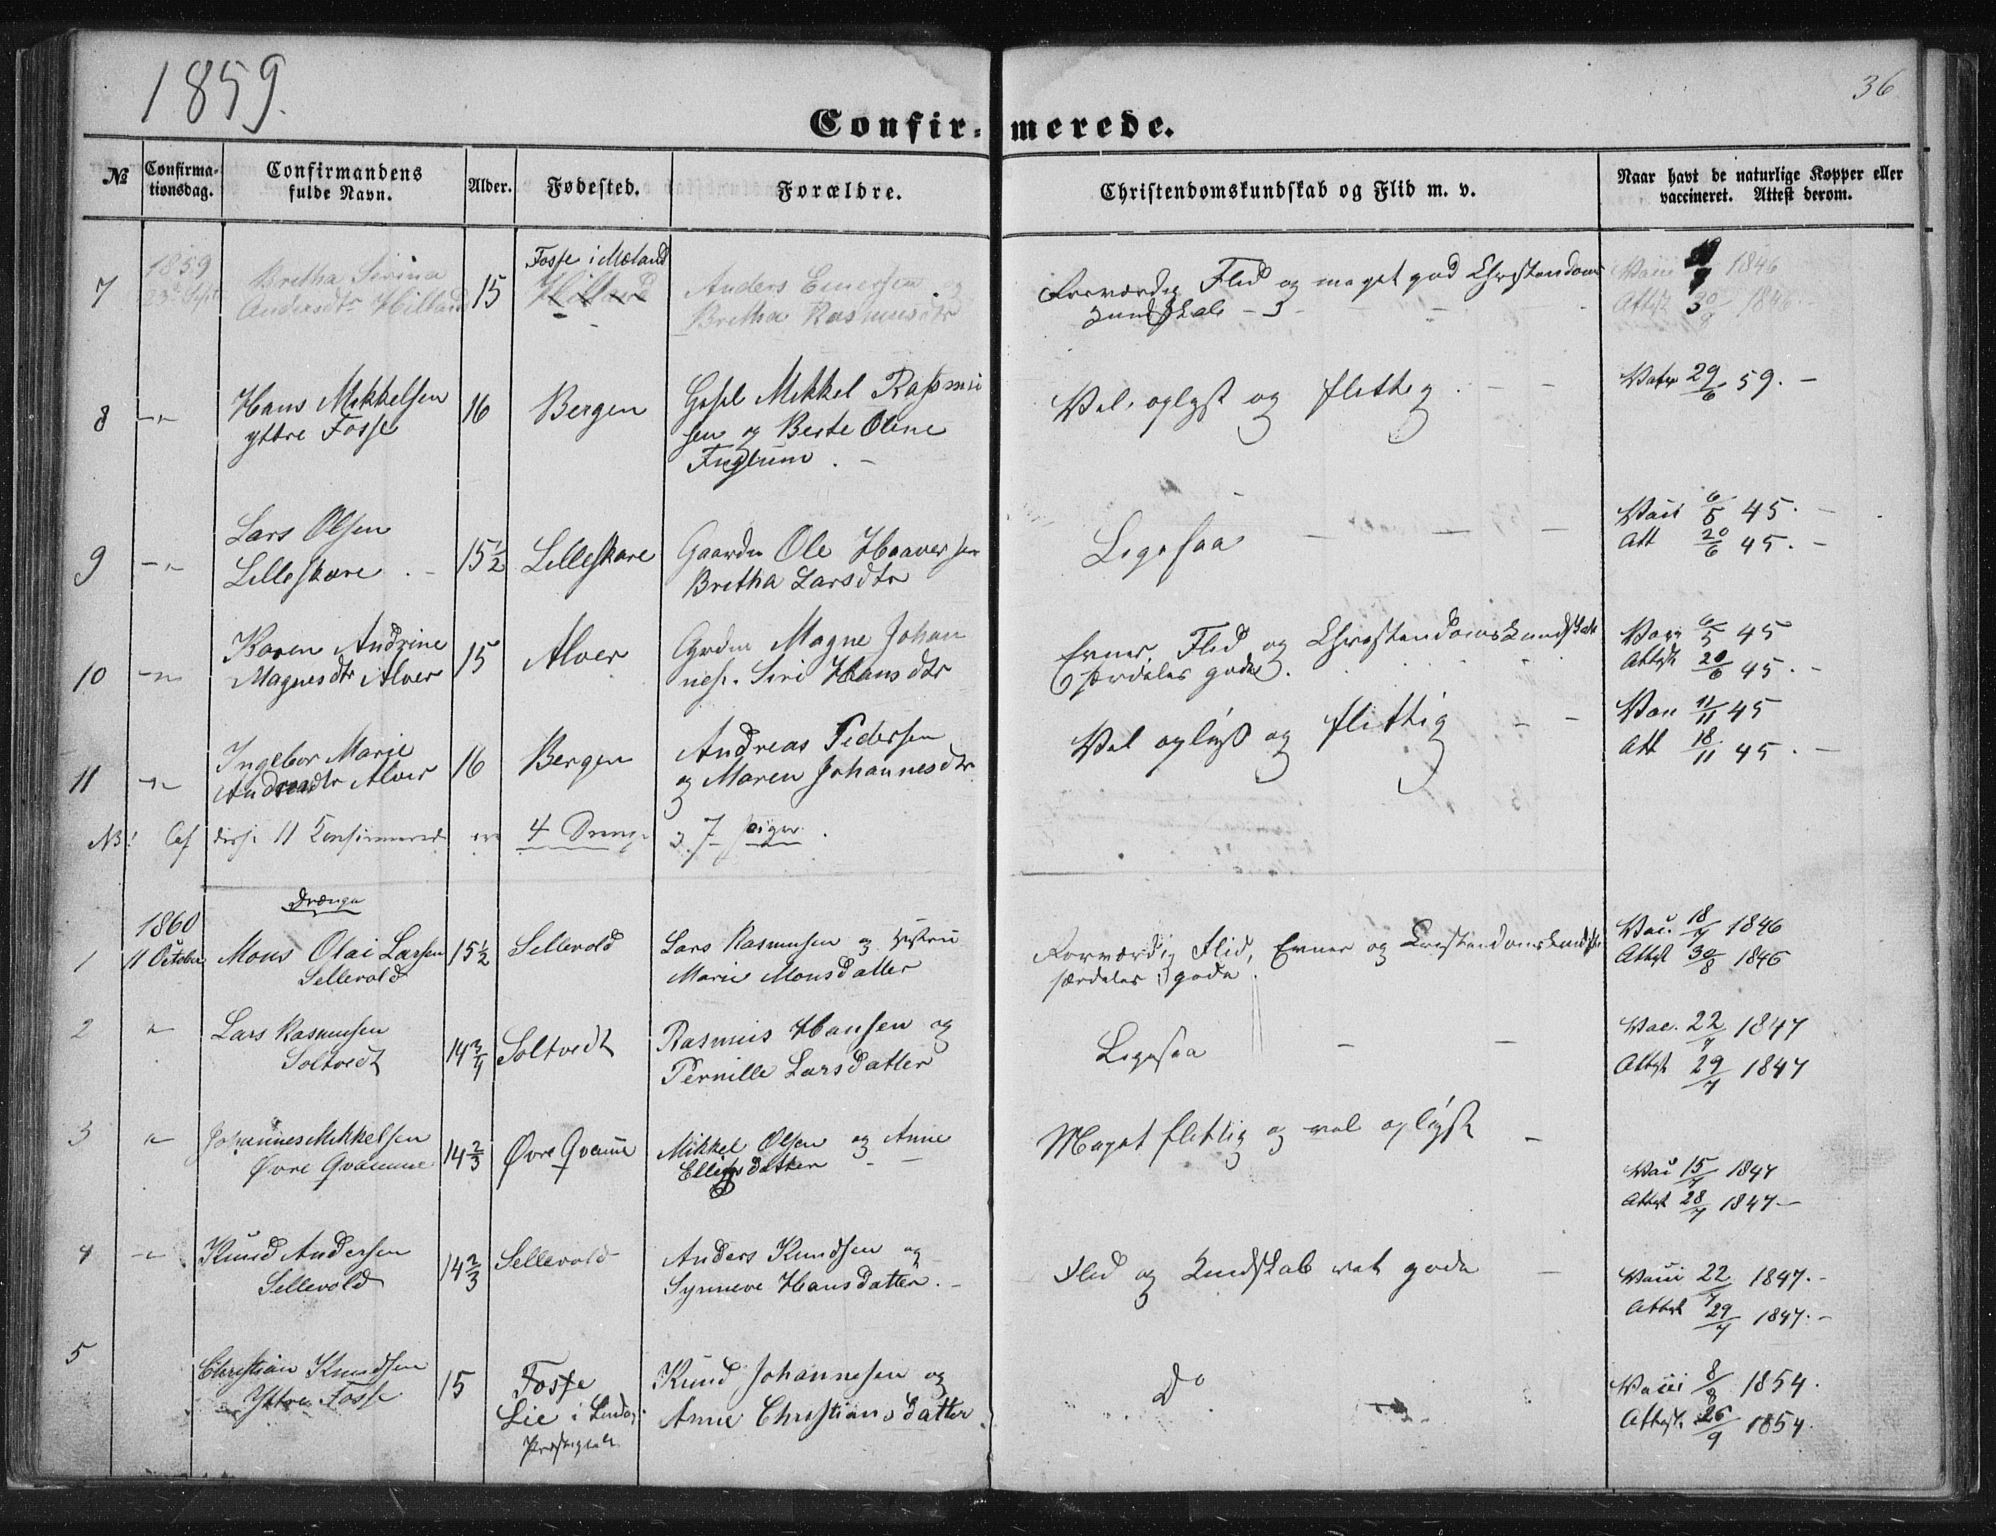 1859.
36
Confirmerede.
№
Confirmationsdag.
Confirmandens fulde Navn.
Alder.
Fødested.
Forældre.
Christendomskundskab og Flid m. v.
Naar havt de naturlige Kopper eller vaccineret. Attest derom.
7 1859 Bretha Serina 15 Fosse i Mæland Anders Einersen og Fortrædig Flid og meget god Christendoms Vacc 1846
23de Sept Andersdtr Hilland Hilland Bretha Rasmusdtr kundskab Attest 30/8 1846
8 -"- Hans Mikkelsen 16 Bergen Mikkel Rasmus Vel oplyst og flittig - - 29/6 59. -
yttre Fosse sen og Berte Oline
Fuglum. -
9 -"- Lars Olsen 15½ Lilleskare Gaardm Ole Haaversen Ligesaa - - - Vacc 6/5 45. -
Lilleskare. - Bretha Larsdtr Att 20/6 45. -
10 -"- Karen Andrine 15 Alver Grdm Magne Johan Evner, Flid og Christendomskundskab Vacc 6/5 45
Magnesdtr Alver nes. Siri Hansdtr særdeles gode. Attest 20/6 45. -
11 -"- Ingebor Marie 16 Bergen Andreas Pedersen Vel oplyst og flittig - - Vac 11/11 45
Andreasdtr Alver og Maren Johannesdtr Att 18/11 45. -
NB! Af disse 11 Konfirmerede ere 4 Drenge og 7 piger.
Drenge
1 1860 11 October Mons Olai Larsen 15½ Sellevold Lars Rasmusen og Hustru Fortrædig Flid, Evner og Cristendomskundsk Vac. 18/7 1846
Sellevold Marie Monsdatter særdeles gode. Attest 30/8 1846
2 " Lars Rasmusen 14¾ Soltvedt Rasmus Hansen og Ligesaa - - Vac. 22/7 1847
Soltvedt Pernille Larsdatter Attest 29/7 1847
3 " Johannes Mikkelsen 14⅔ Øvre Qvamme Mikkel Olsen og Anne Meget flittig og vel oplyst - Vac 15/7 1847
Øvre Qvamme datter - - Attest 28/7 1847 -
4 -"- Knud Andersen 14⅔ Sellevold Anders Knudsen og Flid og Kundskab ret gode - Vacc 22/7 1847. -
Sellevold Synneve Hansdatter. - Attest 29/7 1847. -
5 Christian Knudsen 15 Fosse Knud Johannesen og Do Vacc 8/8 1854.
Yttre Fosse Lie i Lindaas Anne Christiansdatter. Attest. 26/9 1854.
Præstegjeld